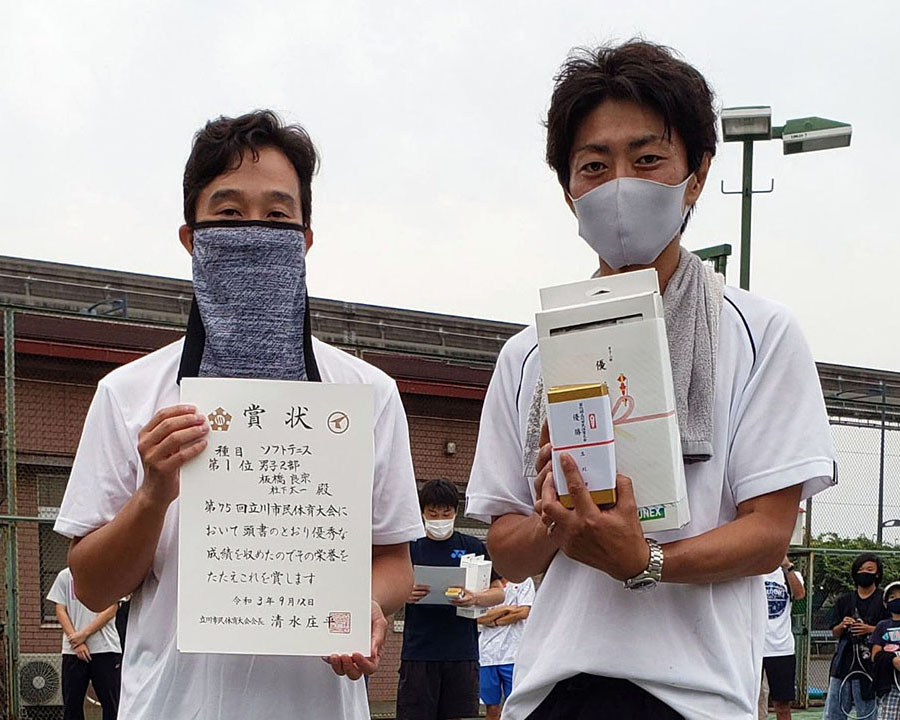 賞状
種目 ソフトテニス
第1位 男子2部
板橋良宗
杜下太一 殿
第75回立川市民体育大会に
おいて頭書のとおり優秀な
成績を収めたのでその栄誉を
たたえこれを賞します
令和3年9月12日
立川市民体育大会会長 清水庄平
優
優勝
YONEX